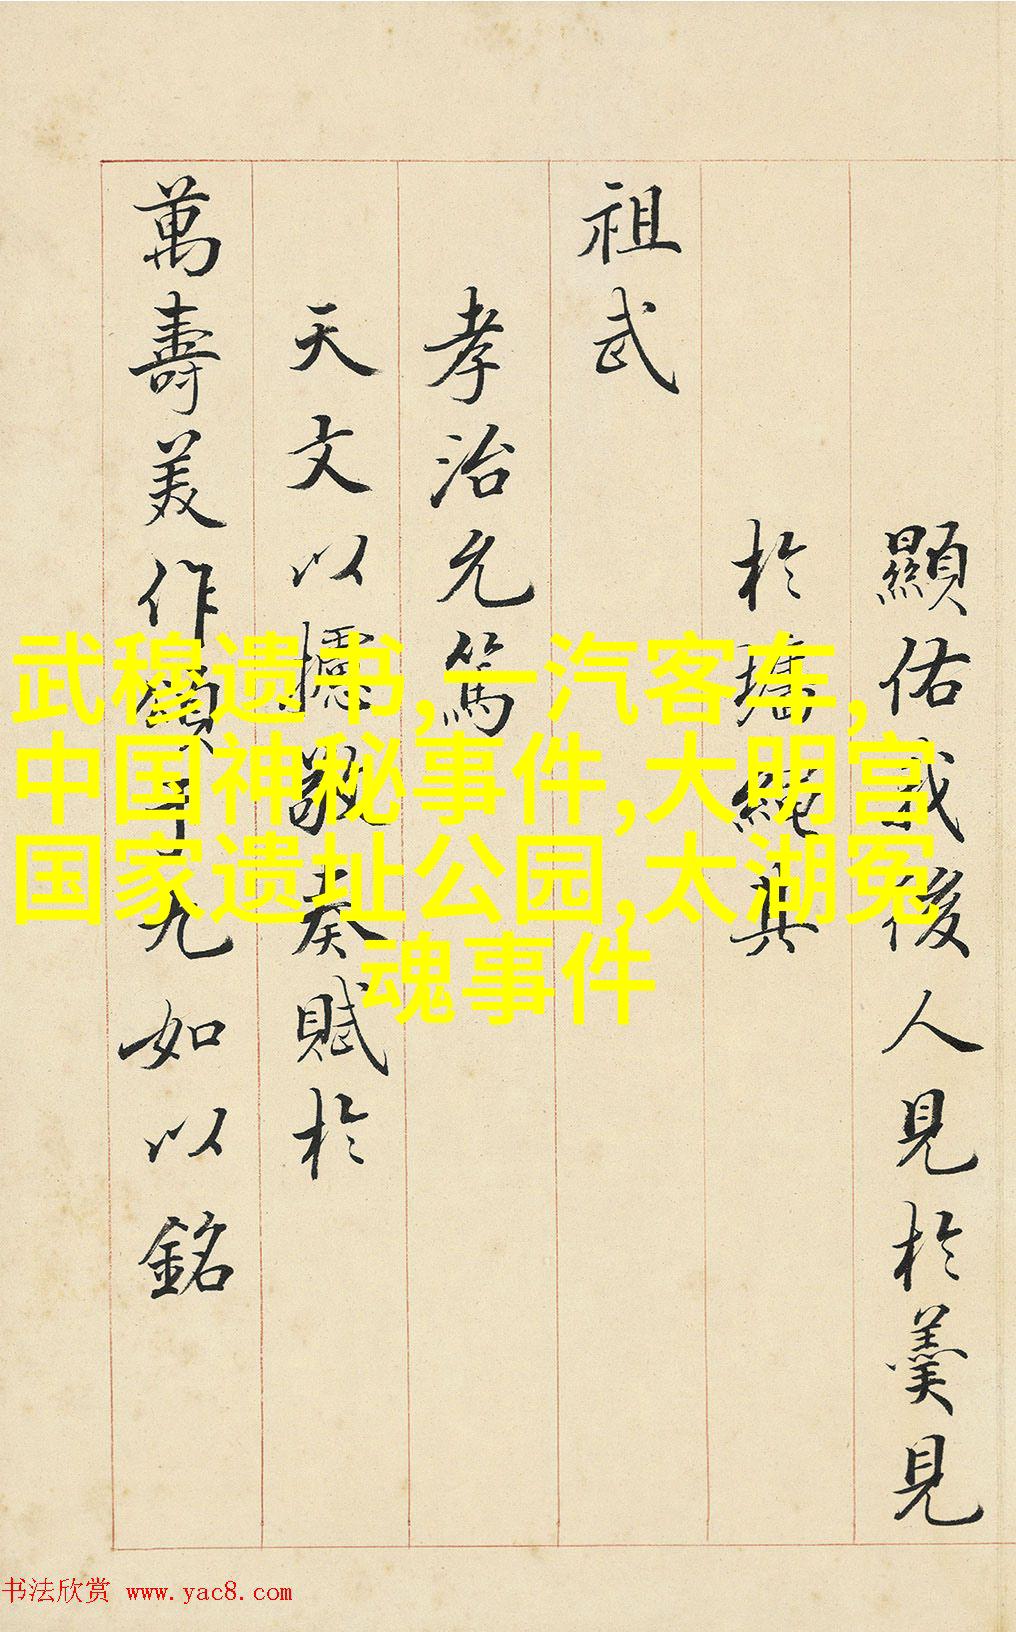 顯佑我後人見於羹見
於墻繩其
祖武
孝治允篤
天文以攄敬奏賦於
萬壽美作頌平九如以銘
武穆遗书,一汽客车,
中国神秘事件,大明宫
国家遗址公园,太湖冤
魂事件
书法欣赏 www.yac8.com